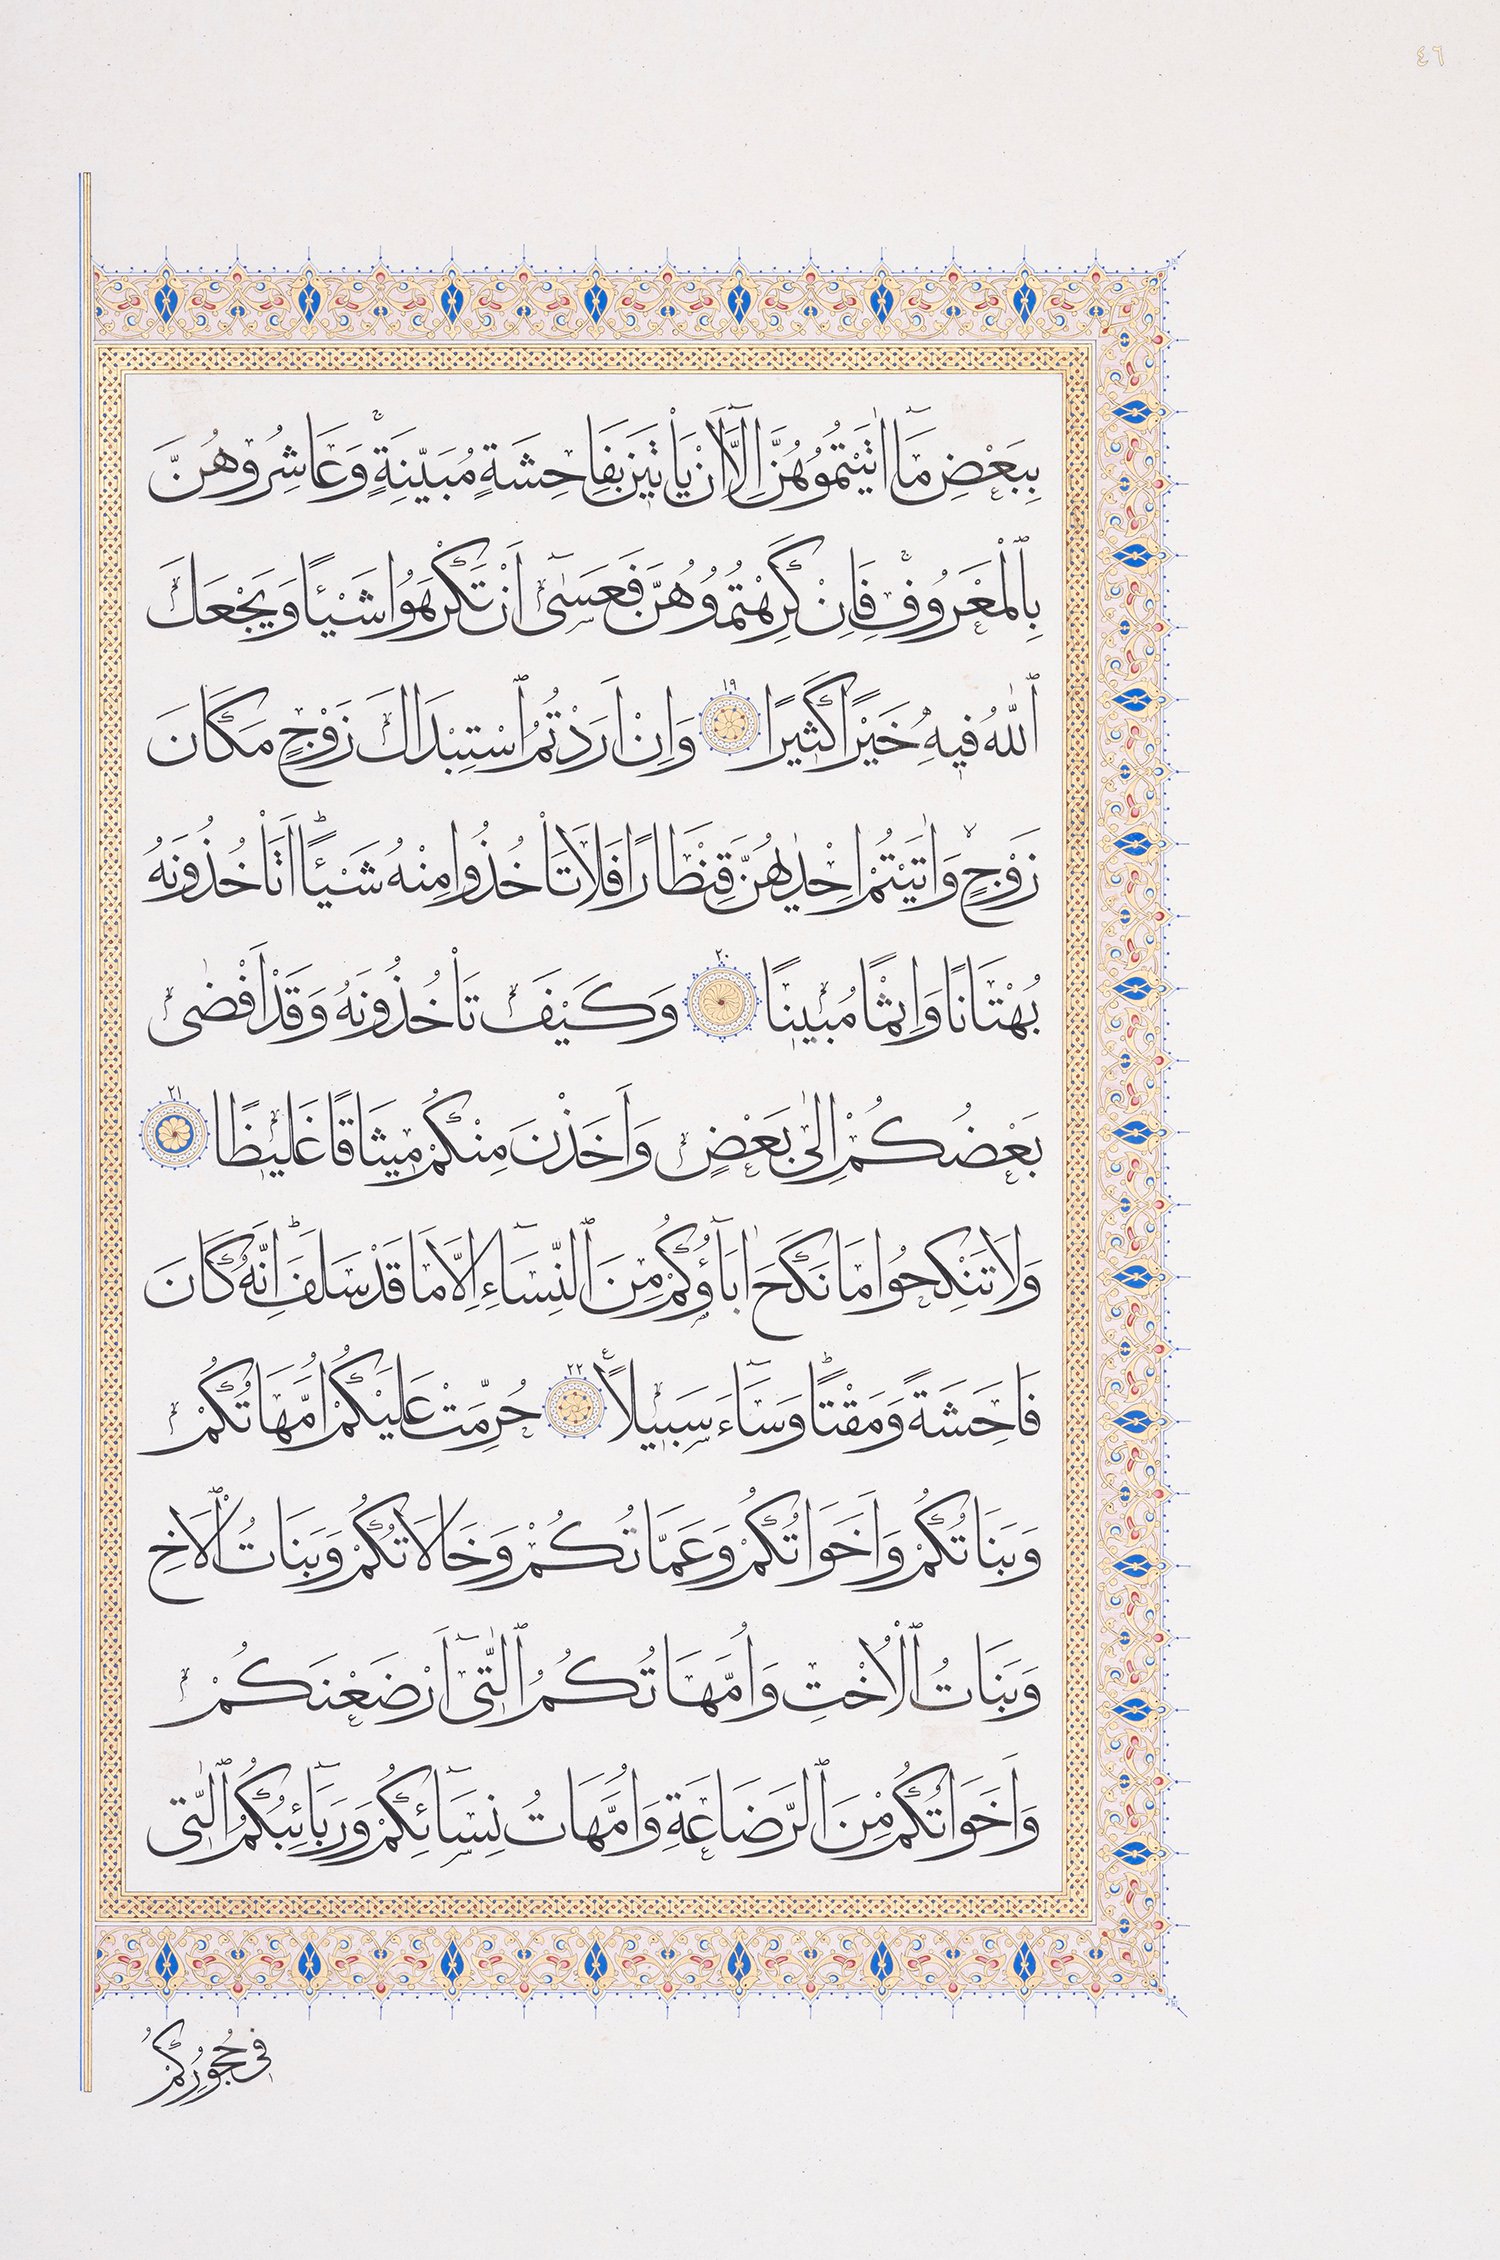 ٤٦
بِبَعْضِ مَٓا اٰتَيْتُمُوهُنَّ اِلَّٓا اَنْ يَأْتِينَ بِفَاحِشَةٍ مُبَيِّنَةٍۚ وَعَاشِرُوهُنَّ
بِالْمَعْرُوفِۚ فَاِنْ كَرِهْتُمُوهُنَّ فَعَسٰٓى اَنْ تَكْرَهُوا شَيْـًٔا وَيَجْعَلَ
اللّٰهُ فِيهِ خَيْرًا كَثِيرًا ١٩ وَاِنْ اَرَدْتُمُ اسْتِبْدَالَ زَوْجٍ مَكَانَ
زَوْجٍۙ وَاٰتَيْتُمْ اِحْدٰيهُنَّ قِنْطَارًا فَلَا تَأْخُذُوا مِنْهُ شَيْـًٔاۜ اَتَأْخُذُونَهُ
بُهْتَانًا وَاِثْمًا مُبِينًا ٢٠ وَكَيْفَ تَأْخُذُونَهُ وَقَدْ اَفْضٰى
بَعْضُكُمْ اِلٰى بَعْضٍ وَاَخَذْنَ مِنْكُمْ مِيثَاقًا غَلِيظًا ٢١
وَلَا تَنْكِحُوا مَا نَكَحَ اٰبَٓاؤُكُمْ مِنَ النِّسَٓاءِ اِلَّا مَا قَدْ سَلَفَۜ اِنَّهُ كَانَ
فَاحِشَةً وَمَقْتًاۜ وَسَٓاءَ سَبِيلًاࣖ ٢٢ حُرِّمَتْ عَلَيْكُمْ اُمَّهَاتُكُمْ
وَبَنَاتُكُمْ وَاَخَوَاتُكُمْ وَعَمَّاتُكُمْ وَخَالَاتُكُمْ وَبَنَاتُ الْاَخِ
وَبَنَاتُ الْاُخْتِ وَاُمَّهَاتُكُمُ الّٰتِٓى اَرْضَعْنَكُمْ
وَاَخَوَاتُكُمْ مِنَ الرَّضَاعَةِ وَاُمَّهَاتُ نِسَٓائِكُمْ وَرَبَٓائِبُكُمُ الّٰتِى
فِى حُجُورِكُمْ